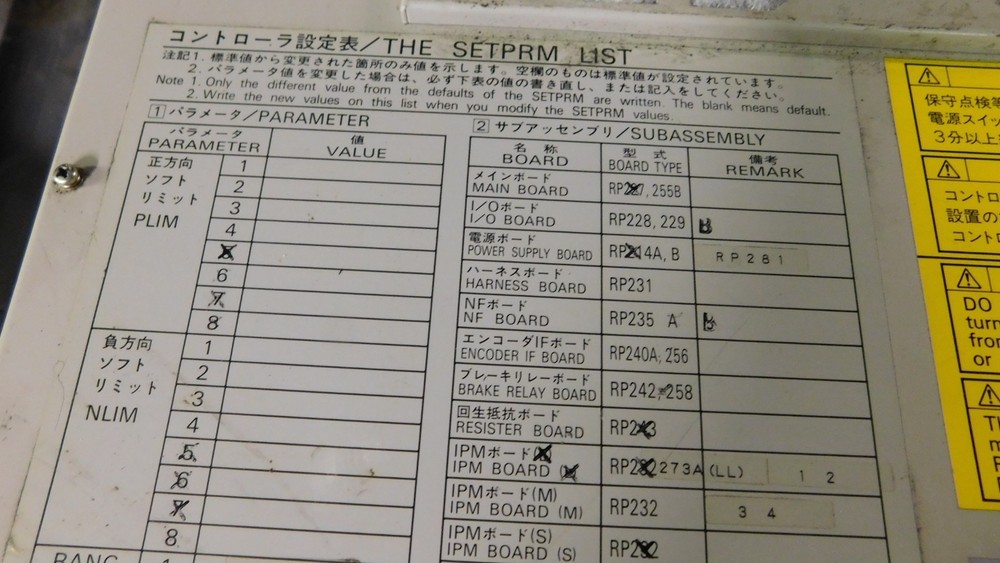 コントローラ設定表/THE SETPRM LIST
注記1. 標準値から変更された箇所のみ値を示します。空欄のものは標準値が設定されています。
2. パラメータ値を変更した場合は、必ず下表の値の書き直し、または記入をしてください。
Note 1. Only the different value from the defaults of the SETPRM are written. The blank means default.
2. Write the new values on this list when you modify the SETPRM values.
1 パラメータ/PARAMETER
パラメータ 値
PARAMETER VALUE
正方向
ソフト
リミット
PLIM
1
2
3
4
6
7
8
負方向
ソフト
リミット
NLIM
1
2
3
4
5
6
7
8
RANG
2 サブアッセンブリ/SUBASSEMBLY
名称 型式 備考
BOARD BOARD TYPE REMARK
メインボード
MAIN BOARD RP ,255B
I/Oボード
I/O BOARD RP228, 229
電源ボード
POWER SUPPLY BOARD RP 14A, B RP281
ハーネスボード
HARNESS BOARD RP231
NFボード
NF BOARD RP235 A
エンコーダIFボード
ENCODER IF BOARD RP240A, 256
ブレーキリレーボード
BRAKE RELAY BOARD RP242, 258
回生抵抗ボード
RESISTER BOARD RP2 3
IPMボード
IPM BOARD RP2 273A (LL) 1 2
IPMボード(M)
IPM BOARD (M) RP232 3 4
IPMボード(S)
IPM BOARD (S) RP2 2
保守点検等
電源スイッ
3分以上
コントロ
設置の
コントロ
DO
turn
from
or